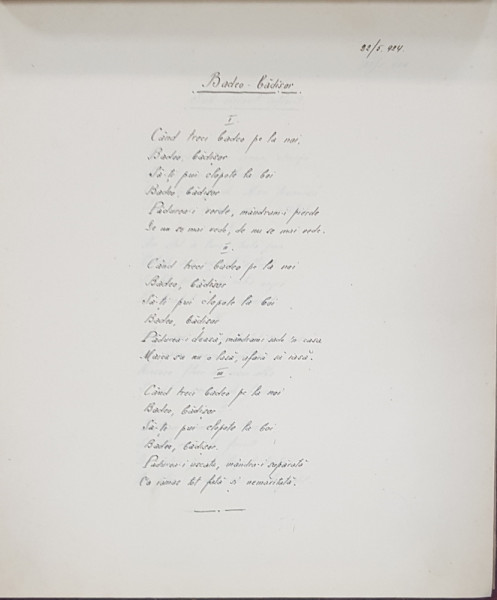 22/5. 904.
Badeo-Bădișor
I.
Când treci badeo pe la noi,
Badeo, bădișor
Să-ți pui clopote la boi
Badeo, bădișor
Pădurea-i verde, mândram-i perde
De nu se mai vede, de nu se mai vede.
II.
Când treci badeo pe la noi
Badeo, bădișor
Să-ți pui clopote la boi
Badeo, bădișor
Pădurea-i deasă, mândram-i în casa
Maica-sa nu o lasă, afară din casă.
III
Când treci badeo pe la noi
Badeo, bădișor
Să-ți pui clopote la boi
Badeo, bădișor.
Padurea-i uscata, mândra-i supărată
Ca ramas tot fată și nemăritată.